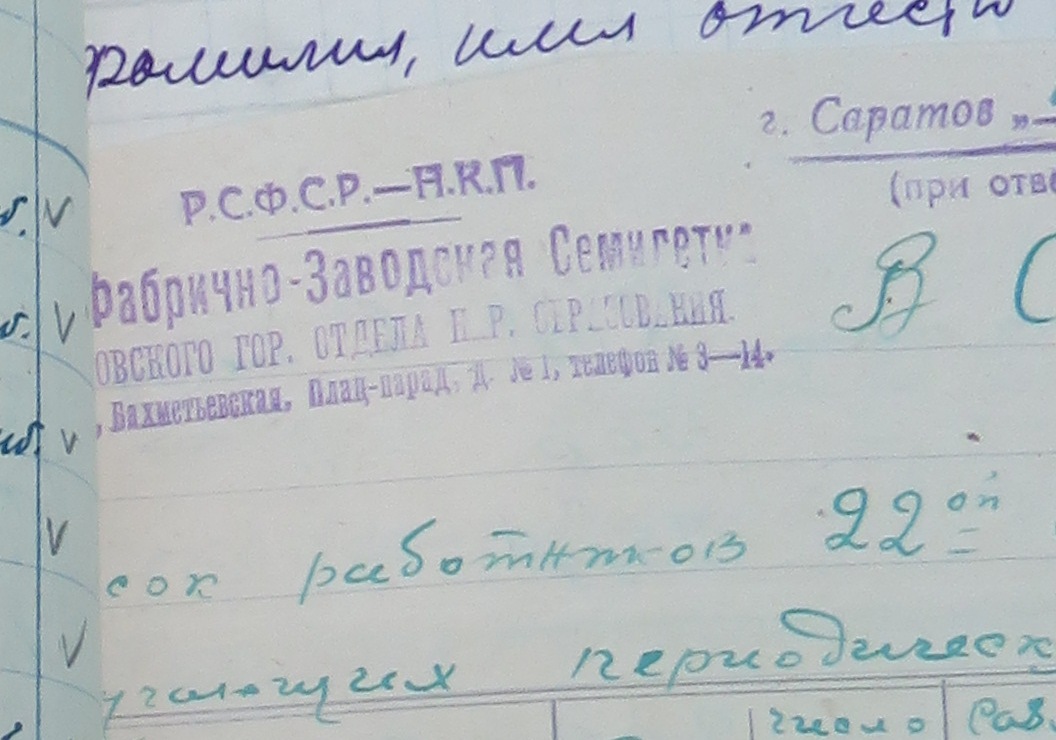 фамилия, имя отчеств
г. Саратов „
Р.С.Ф.С.Р.—Н.К.П.
(при отве
Фабрично-Заводская Семилетка
ОВСКОГО ГОР. ОТДЕЛА Н. Р. ОБРАЗОВАНИЯ.
В С
, Бахметьевская, Плац-парад, д. № 1, телефон № 3—14.
сок работников 22ой
периодическ
число Раб.